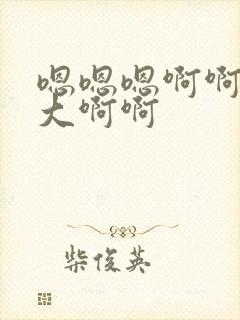 嗯嗯嗯啊啊
大啊啊
柴俊英